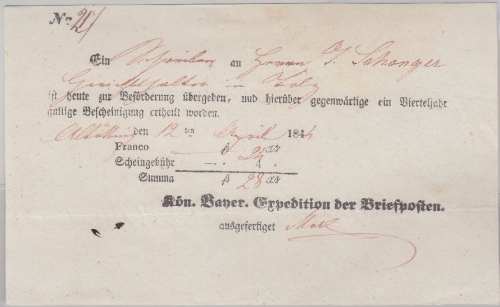 No. 21
Ein Schreiben an Herrn J. Schonger
in Tölz
ist heute zur Beförderung übergeben, und hierüber gegenwärtige ein Vierteljahr
gültige Bescheinigung ertheilt worden.
Altötting den 12 ten April 184
Franco — fl 24 xr
Scheingebühr — „ 4 „
Summa fl 28 xr
Kön. Bayer. Expedition der Briefposten.
ausgefertiget